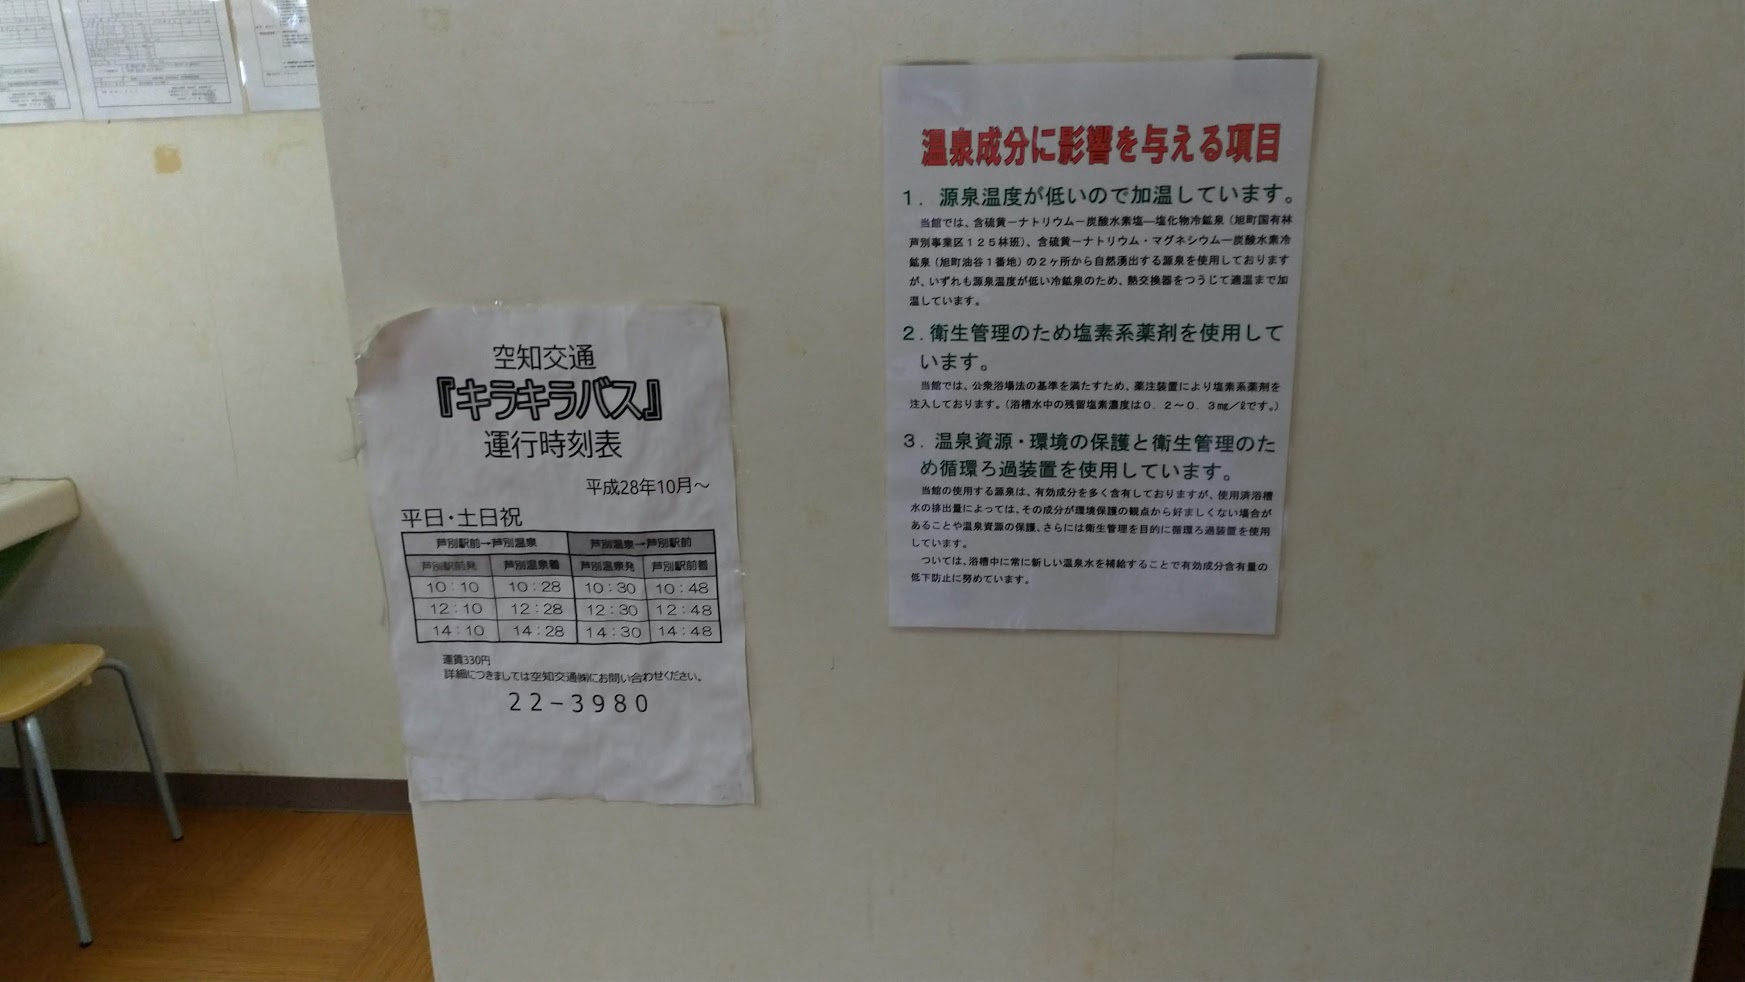 空知交通
『キラキラバス』
運行時刻表
平成28年10月～
平日・土日祝
芦別駅前→芦別温泉 芦別温泉→芦別駅前
芦別駅前発 芦別温泉着 芦別温泉発 芦別駅前着
10：10 10：28 10：30 10：48
12：10 12：28 12：30 12：48
14：10 14：28 14：30 14：48
運賃330円
詳細につきましては空知交通㈱にお問い合わせください。
22－3980
温泉成分に影響を与える項目
１．源泉温度が低いので加温しています。
当館では、含硫黄－ナトリウム－炭酸水素塩―塩化物冷鉱泉（旭町国有林
芦別事業区１２５林班）、含硫黄－ナトリウム・マグネシウム－炭酸水素冷
鉱泉（旭町油谷１番地）の２ヶ所から自然湧出する源泉を使用しております
が、いずれも源泉温度が低い冷鉱泉のため、熱交換器をつうじて適温まで加
温しています。
２．衛生管理のため塩素系薬剤を使用して
います。
当館では、公衆浴場法の基準を満たすため、薬注装置により塩素系薬剤を
注入しております。（浴槽水中の残留塩素濃度は０．２～０．３㎎／ℓです。）
３．温泉資源・環境の保護と衛生管理のた
め循環ろ過装置を使用しています。
当館の使用する源泉は、有効成分を多く含有しておりますが、使用済浴槽
水の排出量によっては、その成分が環境保護の観点から好ましくない場合が
あることや温泉資源の保護、さらには衛生管理を目的に循環ろ過装置を使用
しています。
ついては、浴槽中に常に新しい温泉水を補給することで有効成分含有量の
低下防止に努めています。